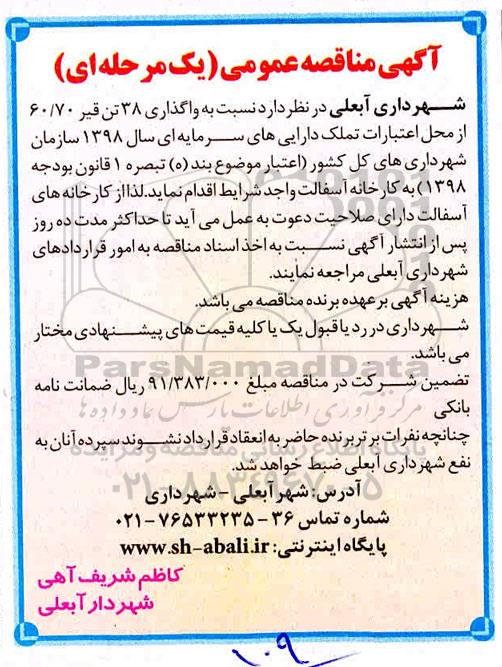 آگهی مناقصه عمومی (یک مرحله ای)
شهرداری آبعلی در نظر دارد نسبت به واگذاری ۳۸ تن قیر ۶۰/۷۰
از محل اعتبارات تملک دارایی های سرمایه ای سال ۱۳۹۸ سازمان
شهرداری های کل کشور (اعتبار موضوع بند (ه) تبصره ۱ قانون بودجه
۱۳۹۸) به کارخانه آسفالت واجد شرایط اقدام نماید. لذا از کارخانه های
آسفالت دارای صلاحیت دعوت به عمل می آید تا حداکثر مدت ده روز
پس از انتشار آگهی نسبت به اخذ اسناد مناقصه به امور قراردادهای
شهرداری آبعلی مراجعه نمایند.
هزینه آگهی بر عهده برنده مناقصه می باشد.
شهرداری در رد یا قبول یک یا کلیه قیمت های پیشنهادی مختار
می باشد.
ParsNamadData
تضمین شرکت در مناقصه مبلغ ۹۱/۳۸۳/۰۰۰ ریال ضمانت نامه
بانکی
مرکز فرآوری اطلاعات پارس نماد داده ها
چنانچه نفرات برتر برنده حاضر به انعقاد قرارداد نشوند سپرده آنان به
پایگاه اطلاع رسانی مناقصه و مزایده
نفع شهرداری آبعلی ضبط خواهد شد.
۰۲۱-۸۸۳۴۹۶۷۰-۵
آدرس: شهر آبعلی - شهرداری
شماره تماس ۳۶ - ۷۶۵۳۳۲۳۵-۰۲۱
پایگاه اینترنتی: www.sh-abali.ir
کاظم شریف آهی
شهردار آبعلی
۱۰۹